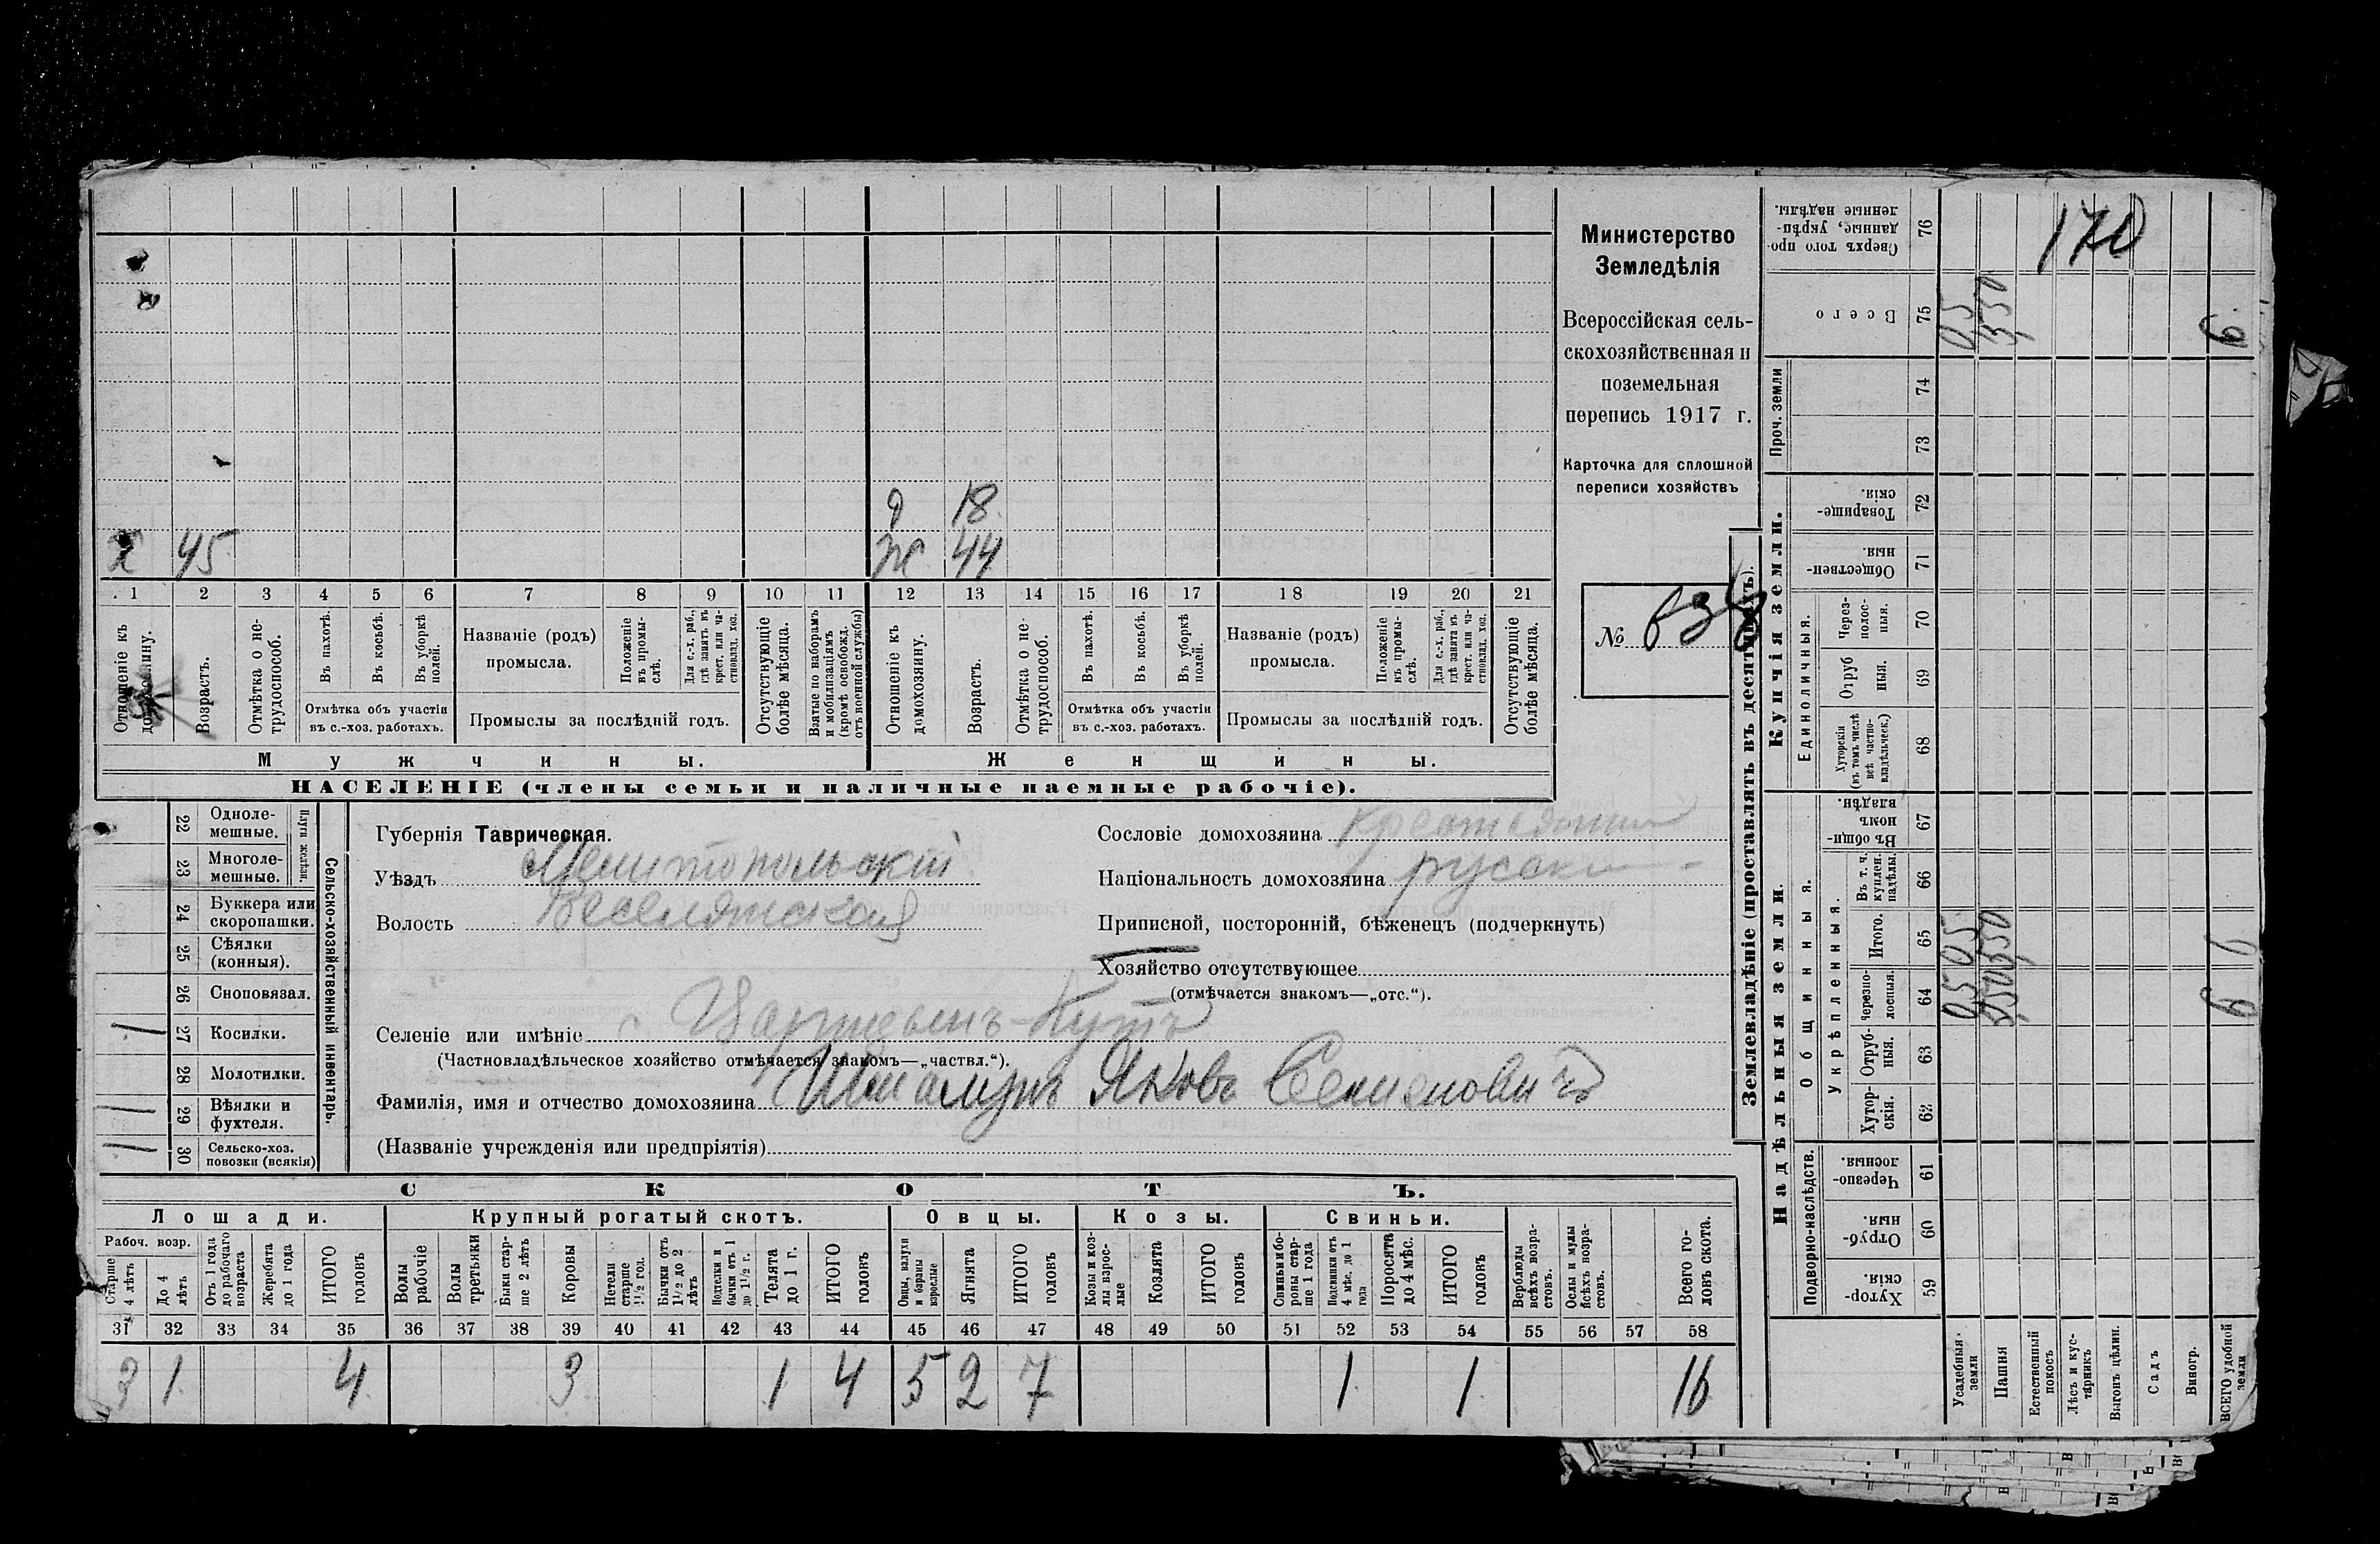 Министерство
Земледѣлія
Всероссійская сель-
скохозяйственная и
поземельная
перепись 1917 г.
Карточка для сплошной
переписи хозяйствъ
№ 638
д 18
х 45 ж 44
1 2 3 4 5 6 7 8 9 10 11 12 13 14 15 16 17 18 19 20 21
Отношеніе къ домохозяину.
Возрастъ.
Отмѣтка о не-
трудоспособ.
Въ пахотѣ.
Въ косьбѣ.
Въ уборкѣ полей.
Отмѣтка объ участіи
въ с.-хоз. работахъ.
Названіе (родъ)
промысла.
Положеніе
въ промы-
слѣ.
Для с.-х. раб.,
гдѣ занятъ въ
крест. или ча-
стновлад. хоз.
Промыслы за послѣдній годъ.
Отсутствующіе
болѣе мѣсяца.
Взятые по наборамъ
и мобилизаціямъ
(кромѣ освобожд.
отъ военной службы)
Отношеніе къ
домохозяину.
Возрастъ.
Отмѣтка о не-
трудоспособ.
Въ пахотѣ.
Въ косьбѣ.
Въ уборкѣ
полей.
Отмѣтка объ участіи
въ с.-хоз. работахъ.
Названіе (родъ)
промысла.
Положеніе
въ промы-
слѣ.
Для с.-х. раб.,
гдѣ занята въ
крест. или ча-
стновлад. хоз.
Промыслы за послѣдній годъ.
Отсутствующіе
болѣе мѣсяца.
Мужчины. Женщины.
НАСЕЛЕНІЕ (члены семьи и наличные наемные рабочіе).
Сельско-хозяйственный инвентарь.
Плуги желѣзн.
22 Одноле-
мешные.
23 Многоле-
мешные.
24 Буккера или
скоропашки.
25 Сѣялки
(конныя).
26 Сноповязал.
1 27 Косилки.
28 Молотилки.
1 29 Вѣялки и
фухтеля.
1 30 Сельско-хоз.
повозки (всякія)
Губернія Таврическая.
Уѣздъ Мелитопольскій
Волость Веселянская
Сословіе домохозяина крестьянин
Національность домохозяина русски
Приписной, посторонній, бѣженецъ (подчеркнуть)
Хозяйство отсутствующее
(отмѣчается знакомъ—„отс.“).
Селеніе или имѣніе с Царицынъ-Кутъ
(Частновладѣльческое хозяйство отмѣчается знакомъ—„частвл.“).
Фамилія, имя и отчество домохозяина Шмалунъ Яковъ Семеновичъ
(Названіе учрежденія или предпріятія)
СКОТЪ.
Лошади. Крупный рогатый скотъ. Овцы. Козы. Свиньи.
Рабоч. возр.
Старше
4 лѣтъ
До 4
лѣтъ
Отъ 1 года
до рабочаго
возраста
Жеребята
до 1 года
ИТОГО
головъ
Волы
рабочіе
Волы
третьяки
Быки стар-
ше 2 лѣтъ
Коровы
Нетели
старше
1½ год.
Бычки отъ
1½ до 2
лѣтъ
Подтелки и
бычки отъ 1
до 1½ г.
Телята
до 1 г.
ИТОГО
головъ
Овцы, валухи
и бараны
взрослые
Ягнята
ИТОГО
головъ
Козы и коз-
лы взрос-
лые
Козлята
ИТОГО
головъ
Свиньи и бо-
ровы стар-
ше 1 года
Подсвинки отъ
4 мѣс. до 1
года
Поросята
до 4 мѣс.
ИТОГО
головъ
Верблюды
всѣхъ возра-
стовъ.
Ослы и мулы
всѣхъ возра-
стовъ.
Всего го-
ловъ скота.
31 32 33 34 35 36 37 38 39 40 41 42 43 44 45 46 47 48 49 50 51 52 53 54 55 56 57 58
3 1 4 3 1 4 5 2 7 1 1 16
Землевладѣніе (проставлять въ десятинахъ).
Надѣльныя земли. Купчія земли. Проч. земли
Подворно-наслѣдств.
Общинныя.
Укрѣпленныя.
Единоличныя.
Хутор-
скія. 59
Отруб-
ныя. 60
Черезпо-
лосныя. 61
Хутор-
скія. 62
Отруб-
ныя. 63
Черезпо-
лосныя. 64
Итого. 65
Въ т. ч.
куплен.
надѣлы. 66
Въ общи-
номъ
владѣн. 67
Хуторскія
(въ томъ числѣ
всѣ частно-
владѣльческ.) 68
Отруб
ныя. 69
Через-
полос-
ныя. 70
Обществен-
ныя. 71
Товарище-
скія. 72
73
74
Всего 75
Сверхъ того про-
данные, укрѣп-
ленные надѣлы. 76
Усадебныя
земли 05 05 05
Пашня 550 550 550
Естественный
покосъ
Лѣсъ и кус-
тарникъ
Выгонъ цѣлин.
Садъ
Виногр.
ВСЕГО удобной
земли 6 6 6
170